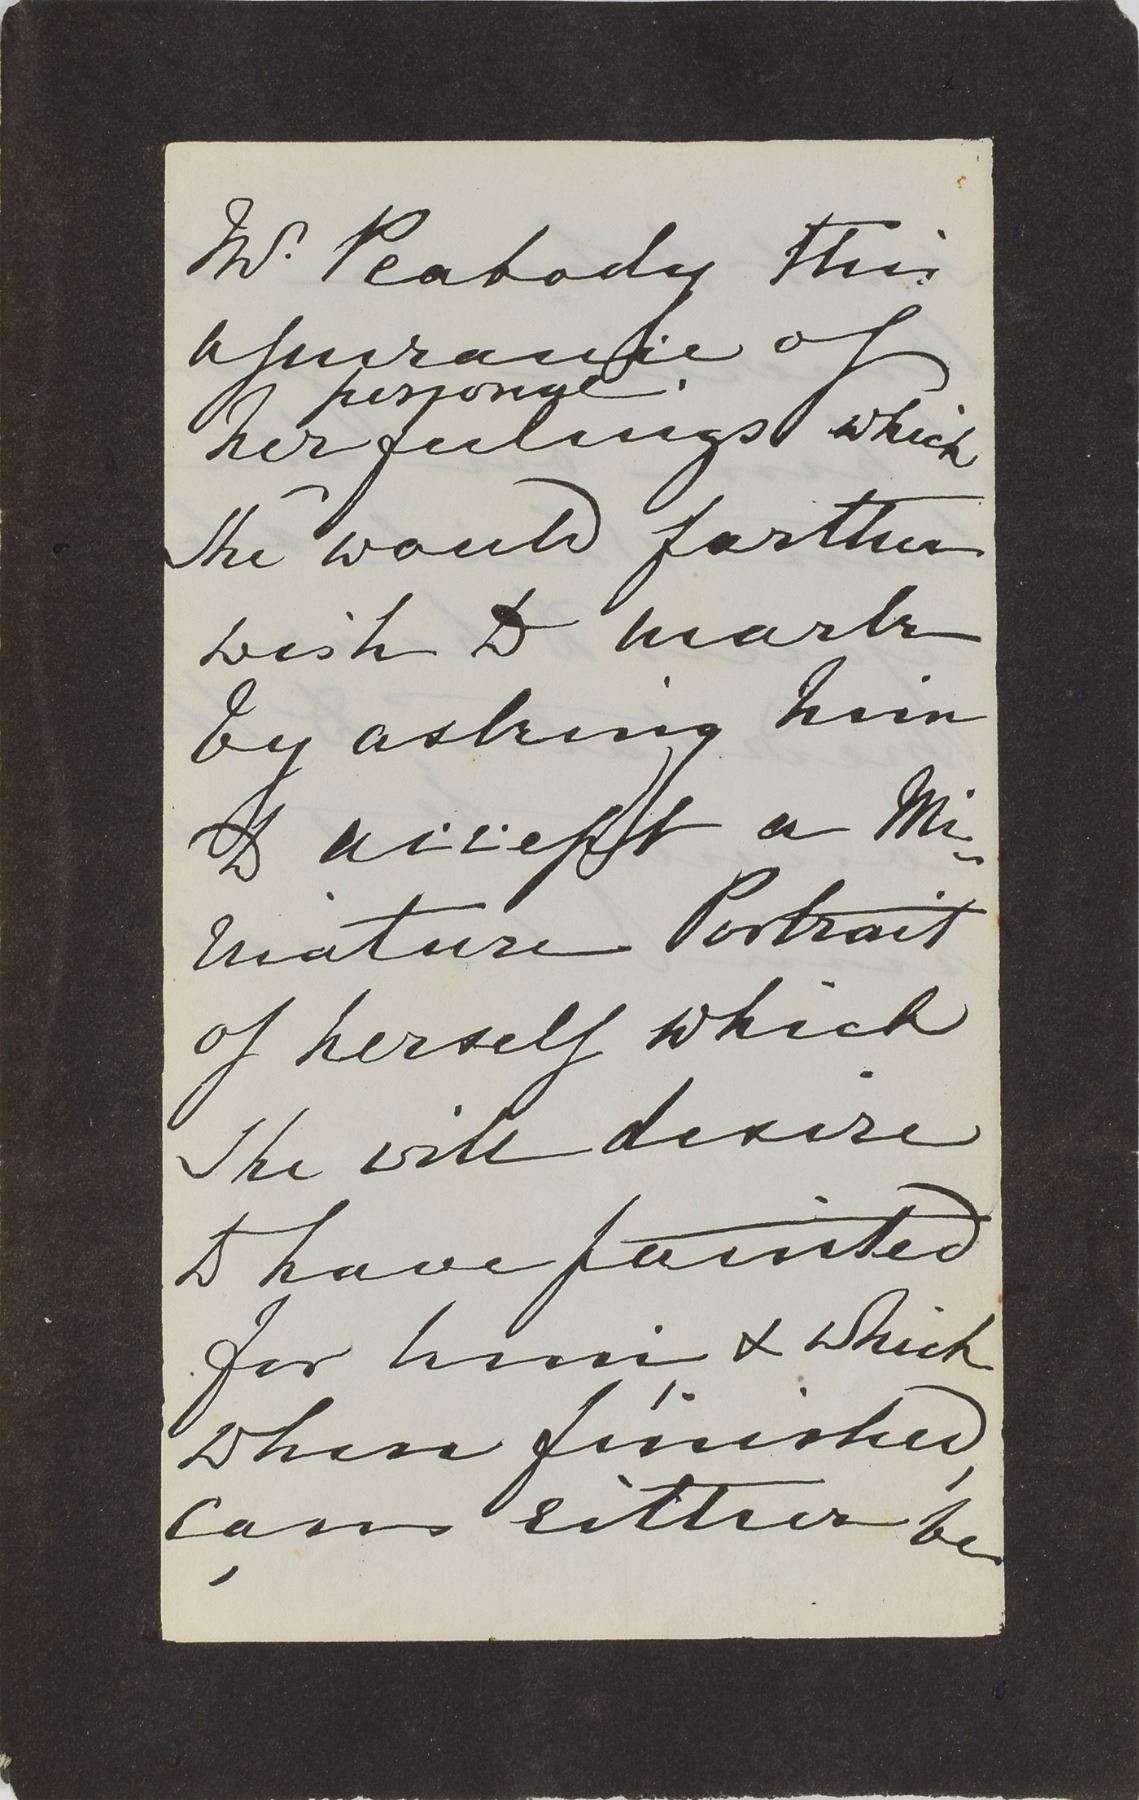 Mr. Peabody this
assurance of
personal
her feelings which
she would farther
wish to mark
by asking him
to accept a Mi-
niature Portrait
of herself which
she will desire
to have painted
for him & which
when finished,
can, either be